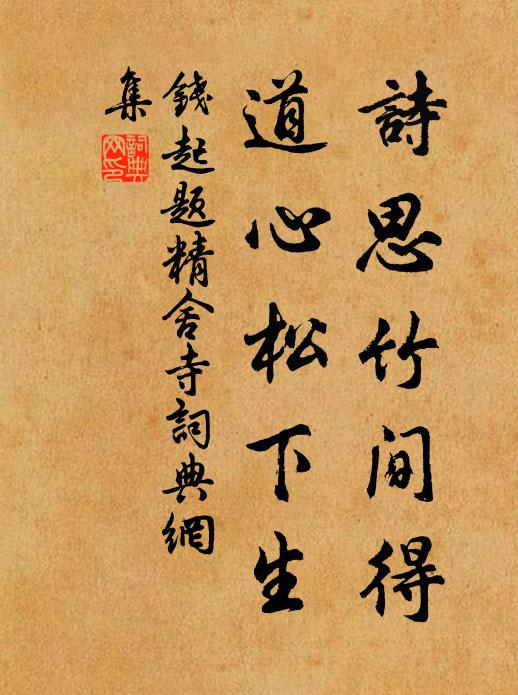 詩思竹间得
道心松下生
錢起题精舍寺詞典網
集
詞典网印